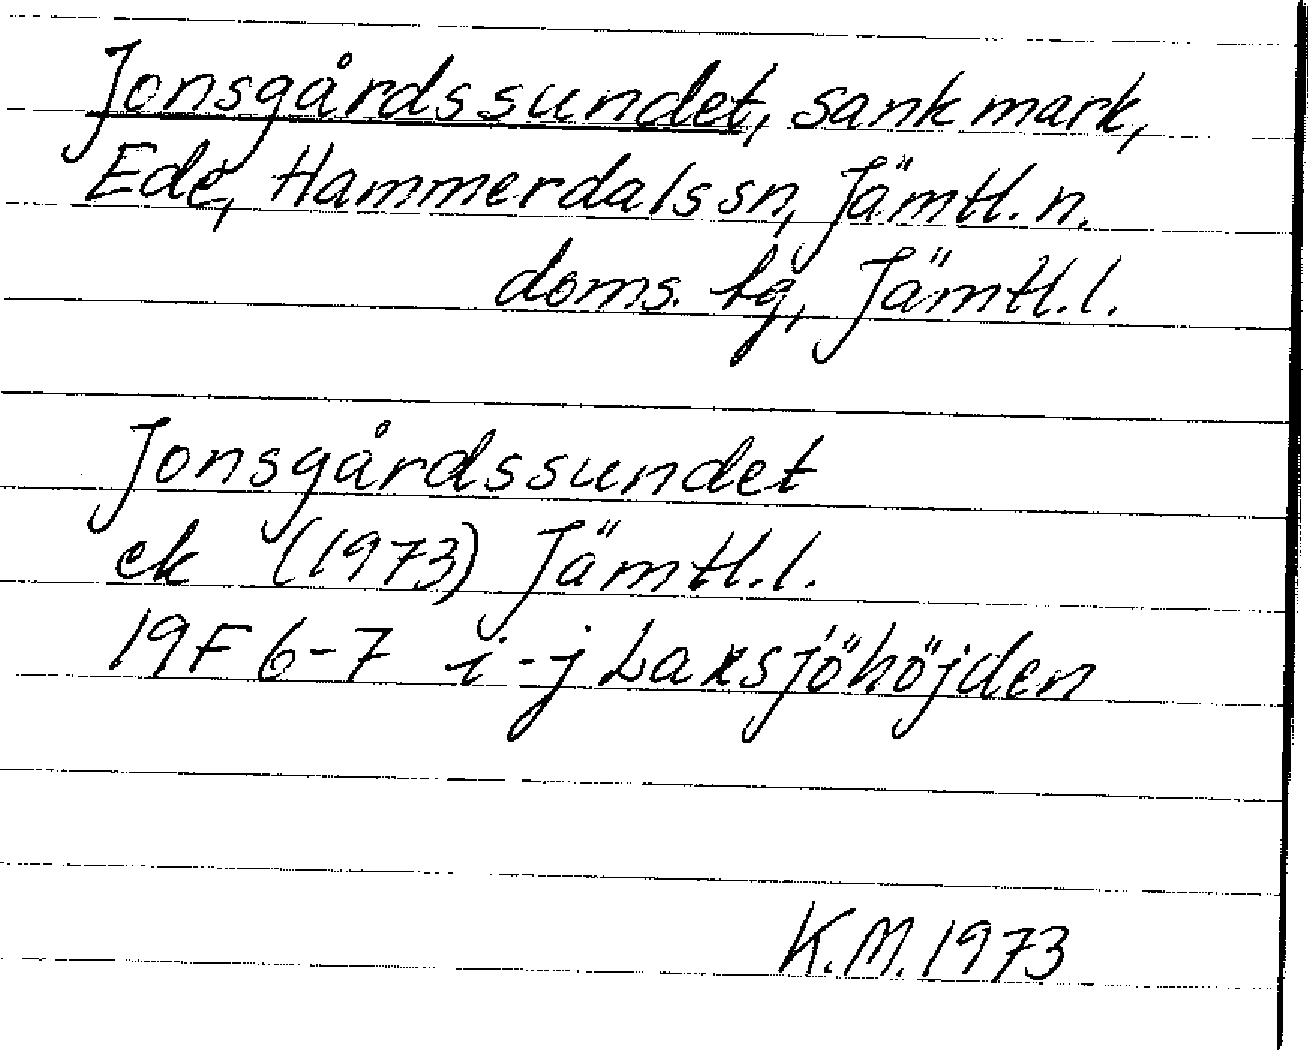 Jonsgårdssundet, sank mark,
Ede, Hammerdals sn, Jämtl. n.
doms. tg, Jämtl. l.
Jonsgårdssundet
ek (1973) Jämtl. l.
19F 6-7 i-j Laxsjöhöjden
K.M. 1973